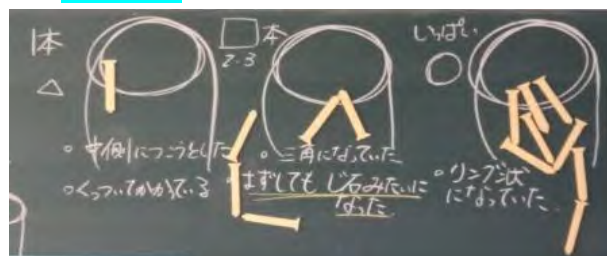 1本
△
□本
2・3
いっぱい
○
○中側につこうとした
○くっついてかかっている
○三角になっていた
○はずしても じ石みたいに
なった
○リング状
になっていた